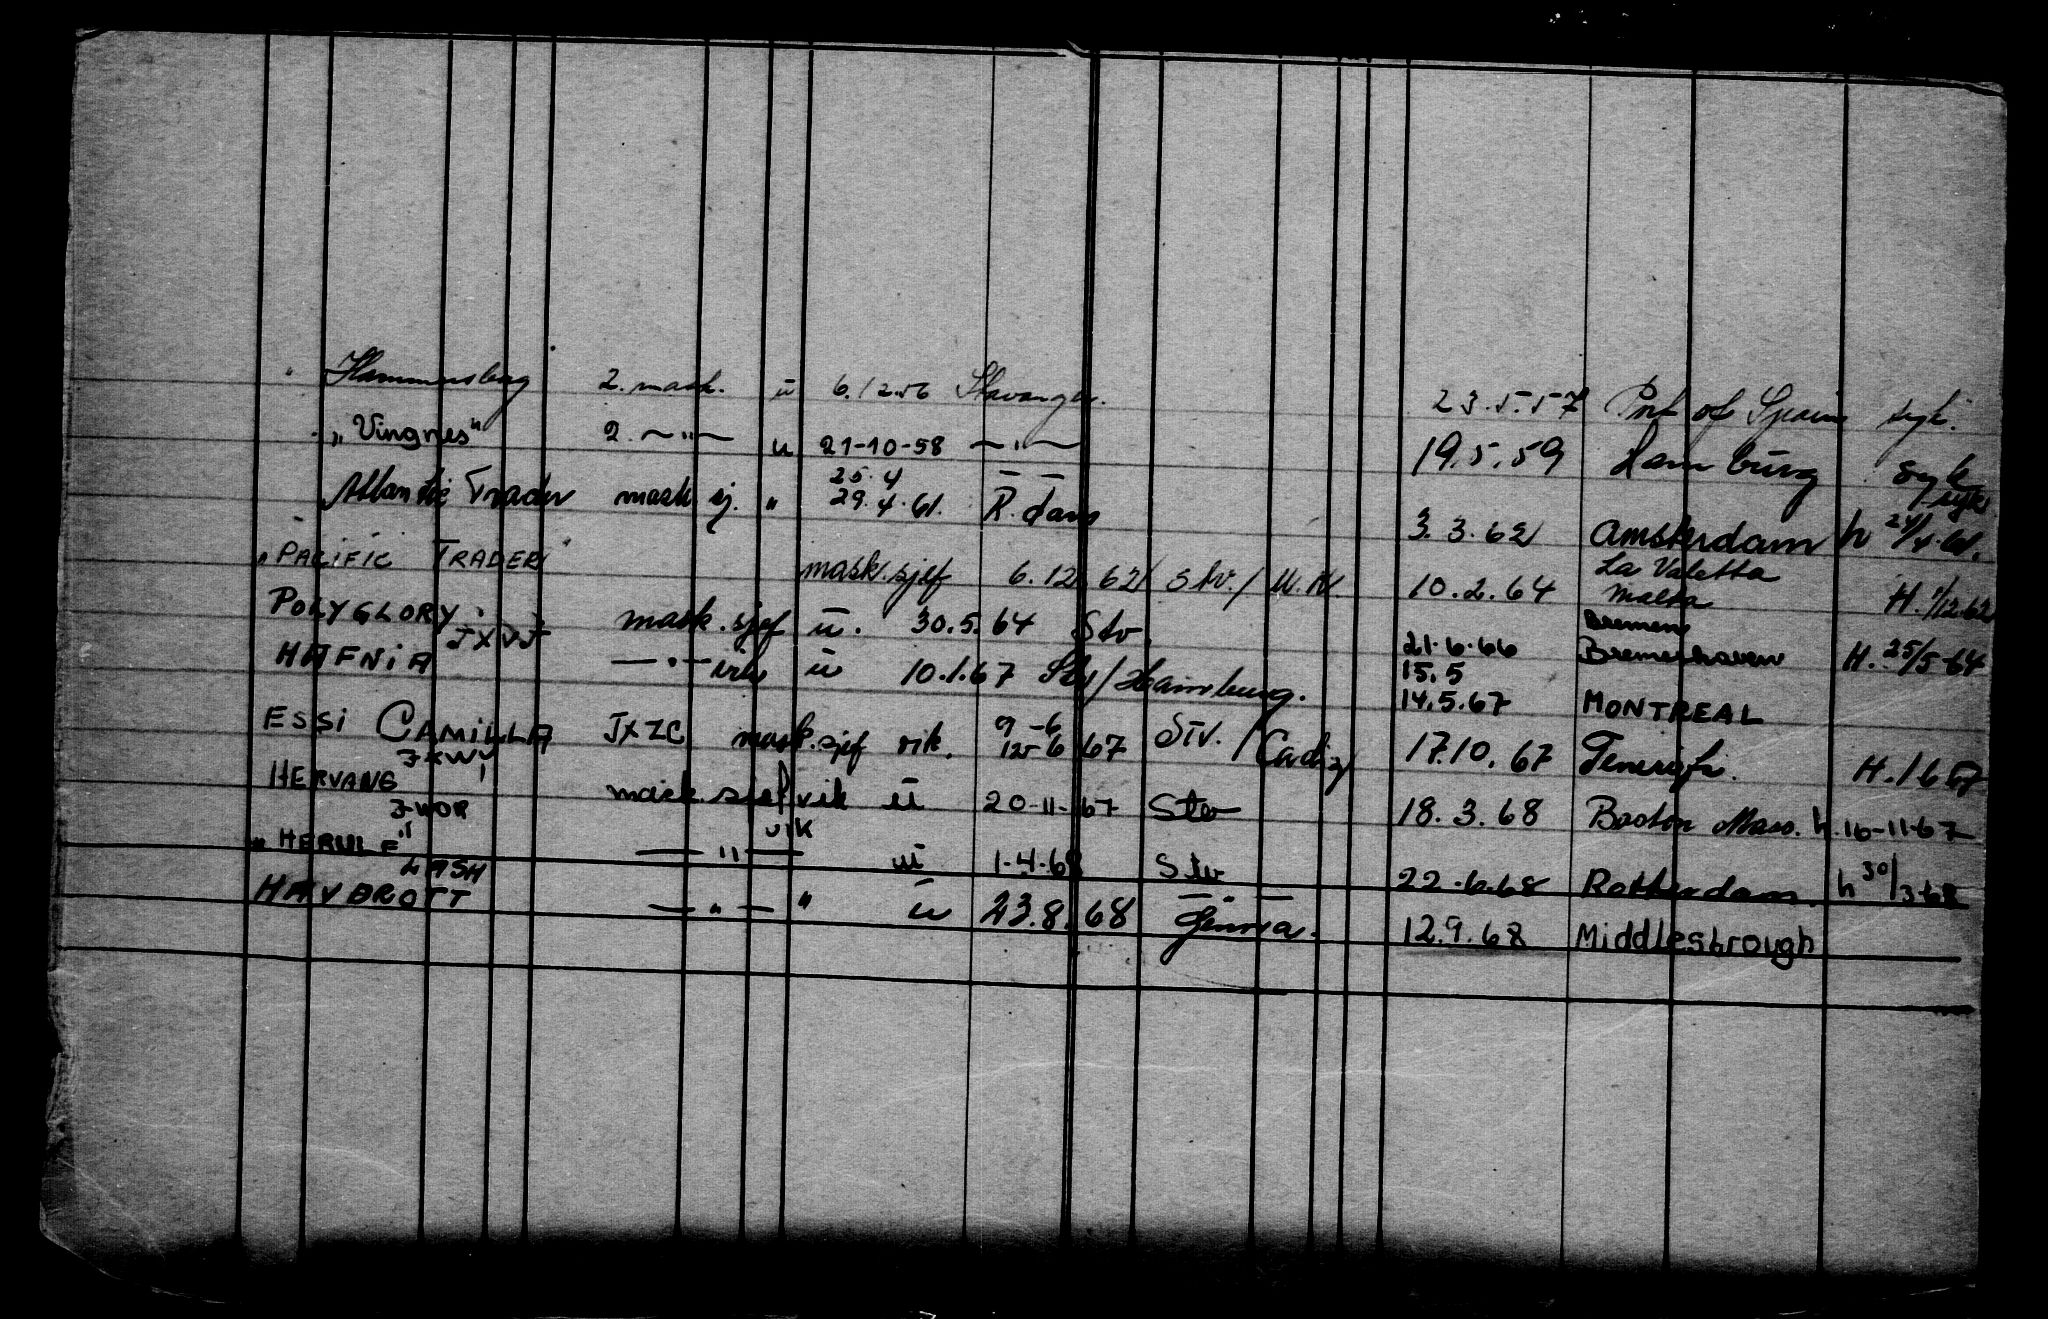 " Hammersborg 2. mask. ü 6.12.56 Stavanger. 23.5.57 Port of Spain syk.
" „Vingnes" 2. —"— ü 21-10-58 —"— 19.5.59 Hamburg syk
25.4 syk
Atlantic Trader mask sj. " 29.4.61. R.dam 3.3.62 Amsterdam h 24/4.61.
„PACIFIC TRADER" mask.sjef 6.12.62 Stv./ 10.2.64 La Valetta Malta H. 1/12.62
POLYGLORY mask.sjef ü. 30.5.64 Stv. 21.6.66 Bremen Bremerhaven H. 25/5-64
JXVJ 15.5
HAFNIA —"— vik ü 10.1.67 Stv/Hamburg. 14.5.67 MONTREAL
9-6
ESSI CAMILLA JXZC mask.sjef vik. 12 6 67 STV./Cadiz 17.10.67 Teneriffe. H. 1 6 67
JXWY
HERVANG mask sjef vik ü 20-11-67 Stv 18.3.68 Boston Mass. h. 16-11-67
JWOR vik
„HERULE" —"— ü 1-4-68 Stv 22.6.68 Rotterdam. h 30/3-68
LASH
HAVBROTT —"— " ü 23.8.68 Genua. 12.9.68 Middlesbrough